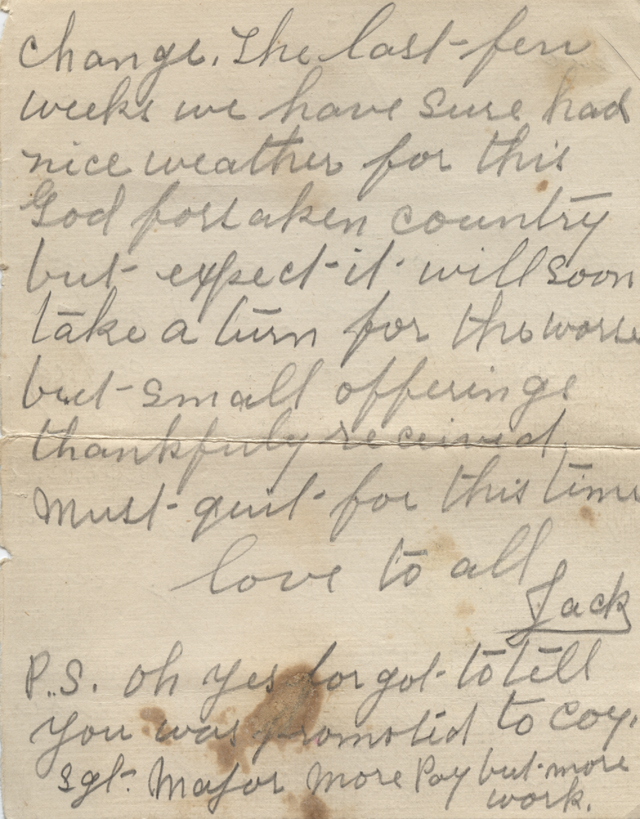 change. The last few
weeks we have sure had
nice weather for this
God forsaken country
but expect it will soon
take a turn for the worse
but small offerings
thankfuly received.
Must quit for this time
love to all
Jack
P.S. Oh yes forgot to tell
you was promoted to Coy.
Sgt. Major More Pay but more
work.